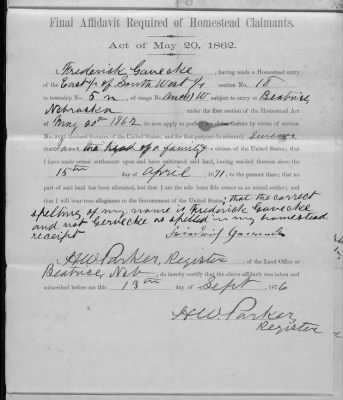 Final Affidavit Required of Homestead Claimants.
Act of May 20, 1862.
I, Frederick Gavecke, having made a Homestead entry
of the East ½ of South West ¼ section No. 18
in township No. 5 N, of range No. One (1) W subject to entry at Beatrice,
Nebraska under the first section of the Homestead Act
of May 20th 1862 do now apply to perfect my claim thereto by virtue of section
No. 2291 Revised Statutes of the United States; and for that purpose do solemnly swear
that I am the head of a family a citizen of the United States; that I
have made actual settlement upon and have cultivated said land, having resided thereon since the
15th day of April 1871, to the present time; that no
part of said land has been alienated, but that I am the sole bona fide owner as an actual settler; and
that I will bear true allegiance to the Government of the United States; that the correct
spelling of my name is Frederick Gavecke
and not Gervecke as spelled in my homestead
receipt
I, H.W. Parker, Register, of the Land Office at
Beatrice, Neb, do hereby certify that the above affidavit was taken and
subscribed before me this 13th day of Sept, 1876
H.W. Parker,
Register